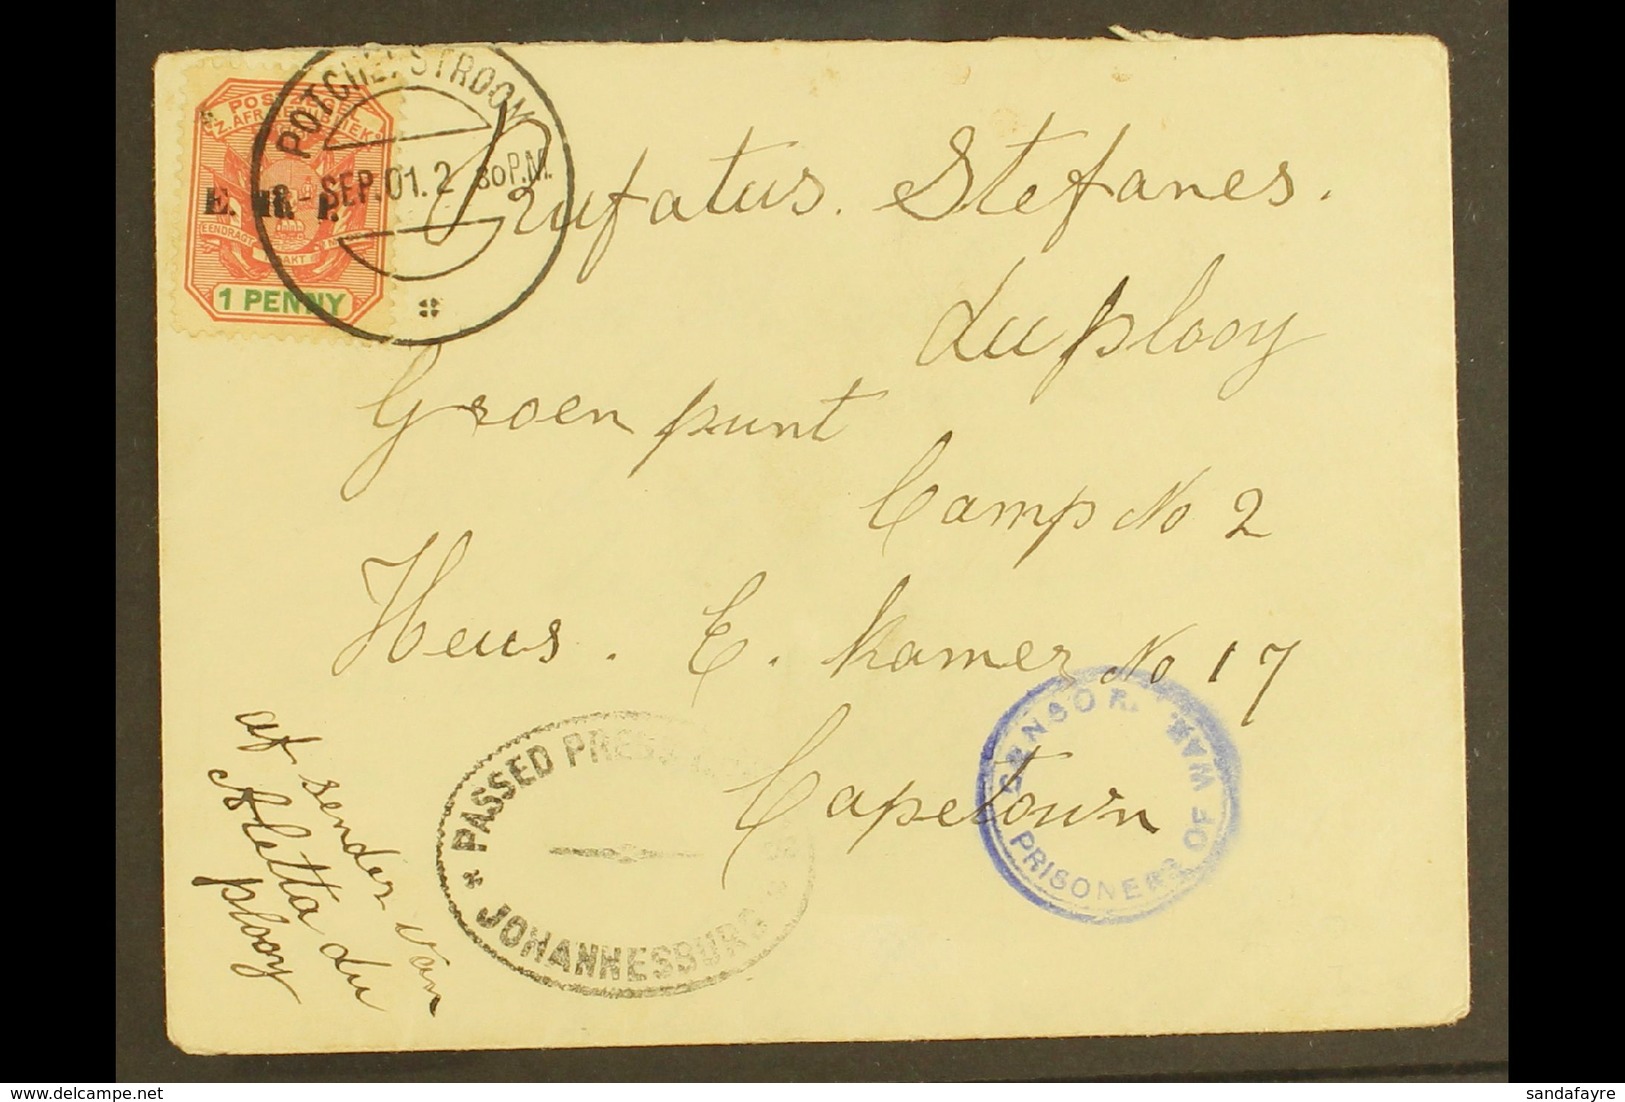 POSTZEGEL
Z. AFR. REPUBLIEK
E. R. I.
EENDRAGT MAAKT
1 PENNY
POTCHEFSTROOM
SEP. 01. 2 30 P.M.
Rufatus. Stefanes.
du plooy
Groen punt
Camp No 2
Heus. E. Kamer No 17
Capetown
af sender van
Aletta du
plooy
PASSED PRESS
JOHANNESBURG
CENSOR.
PRISONERS OF WAR.
sandafayre